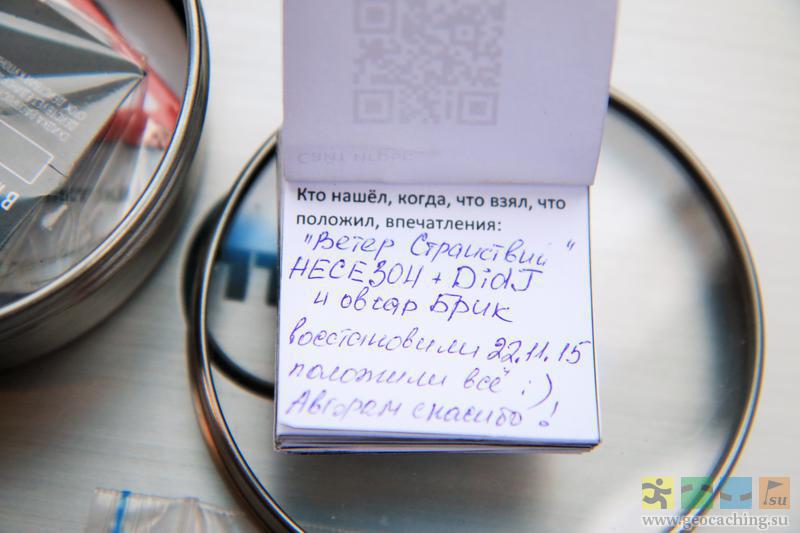 Кто нашёл, когда, что взял, что
положил, впечатления:
"Ветер Странствий"
НЕСЕЗОН + DidJ
и овчар Брик
восстановили 22.11.15
положили всё :)
Авторам спасибо!
www.geocaching.su
su